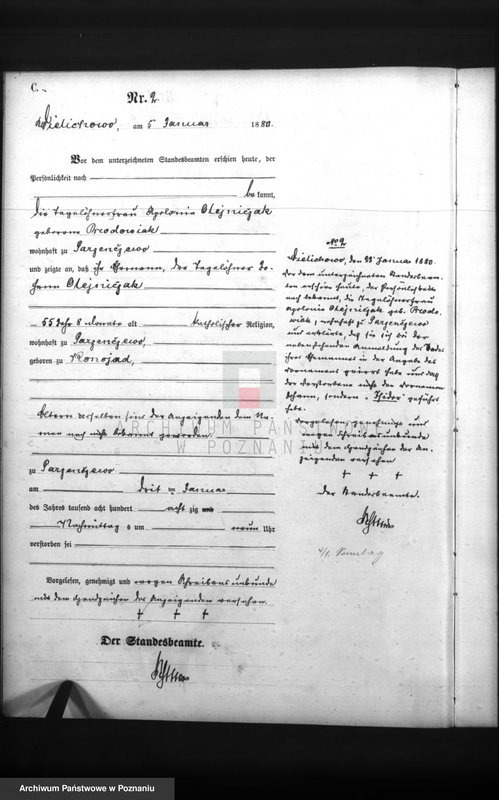 C.
Nr. 2
Wielichowo, am 5 Januar 1880.
Vor dem unterzeichneten Standesbeamten erschien heute, der
Persönlichkeit nach
bekannt,
die Tagelöhnerfrau Apolonia Olejniczak
geborene Brodowiak
wohnhaft zu
und zeigte an, daß ihr Ehemann, der Tagelöhner Jo-
hann Olejniczak
55 Jahr 8 Monate alt katholischer Religion,
wohnhaft zu
geboren zu Konojad,
Eltern derselben sind der Anzeigenden dem Na-
men nach nicht bekannt geworden.
zu
am drei ten Januar
des Jahres tausend acht hundert acht zig und
Nachmittag s um neun Uhr
verstorben sei
Vorgelesen, genehmigt und wegen Schreibensunkunde
mit dem Handzeichen der Anzeigenden versehen.
† † †
Der Standesbeamte.
No 2
Wielichowo, den Januar 1880.
Vor dem unterzeichneten Standesbeam-
ten erschien heute, der Persönlichkeit
nach bekannt, die Tagelöhnerfrau
Apolonia Olejniczak geb. Brodo-
wiak, wohnhaft zu
und erklärte, daß sie sich bei der
nebenstehenden Anmeldung des Todes
ihres Ehemannes in der Angabe des
Vornamens geirrt habe und daß
der Verstorbene nicht den Vornamen
Johann, sondern "Isidor" geführt
habe.
Vorgelesen, genehmigt und
wegen Schreibensunkunde
mit dem Handzeichen der An-
zeigenden versehen
† † †
Der Standesbeamte.
ARCHIWUM PAŃSTWOWE
W POZNANIU
Archiwum Państwowe w Poznaniu